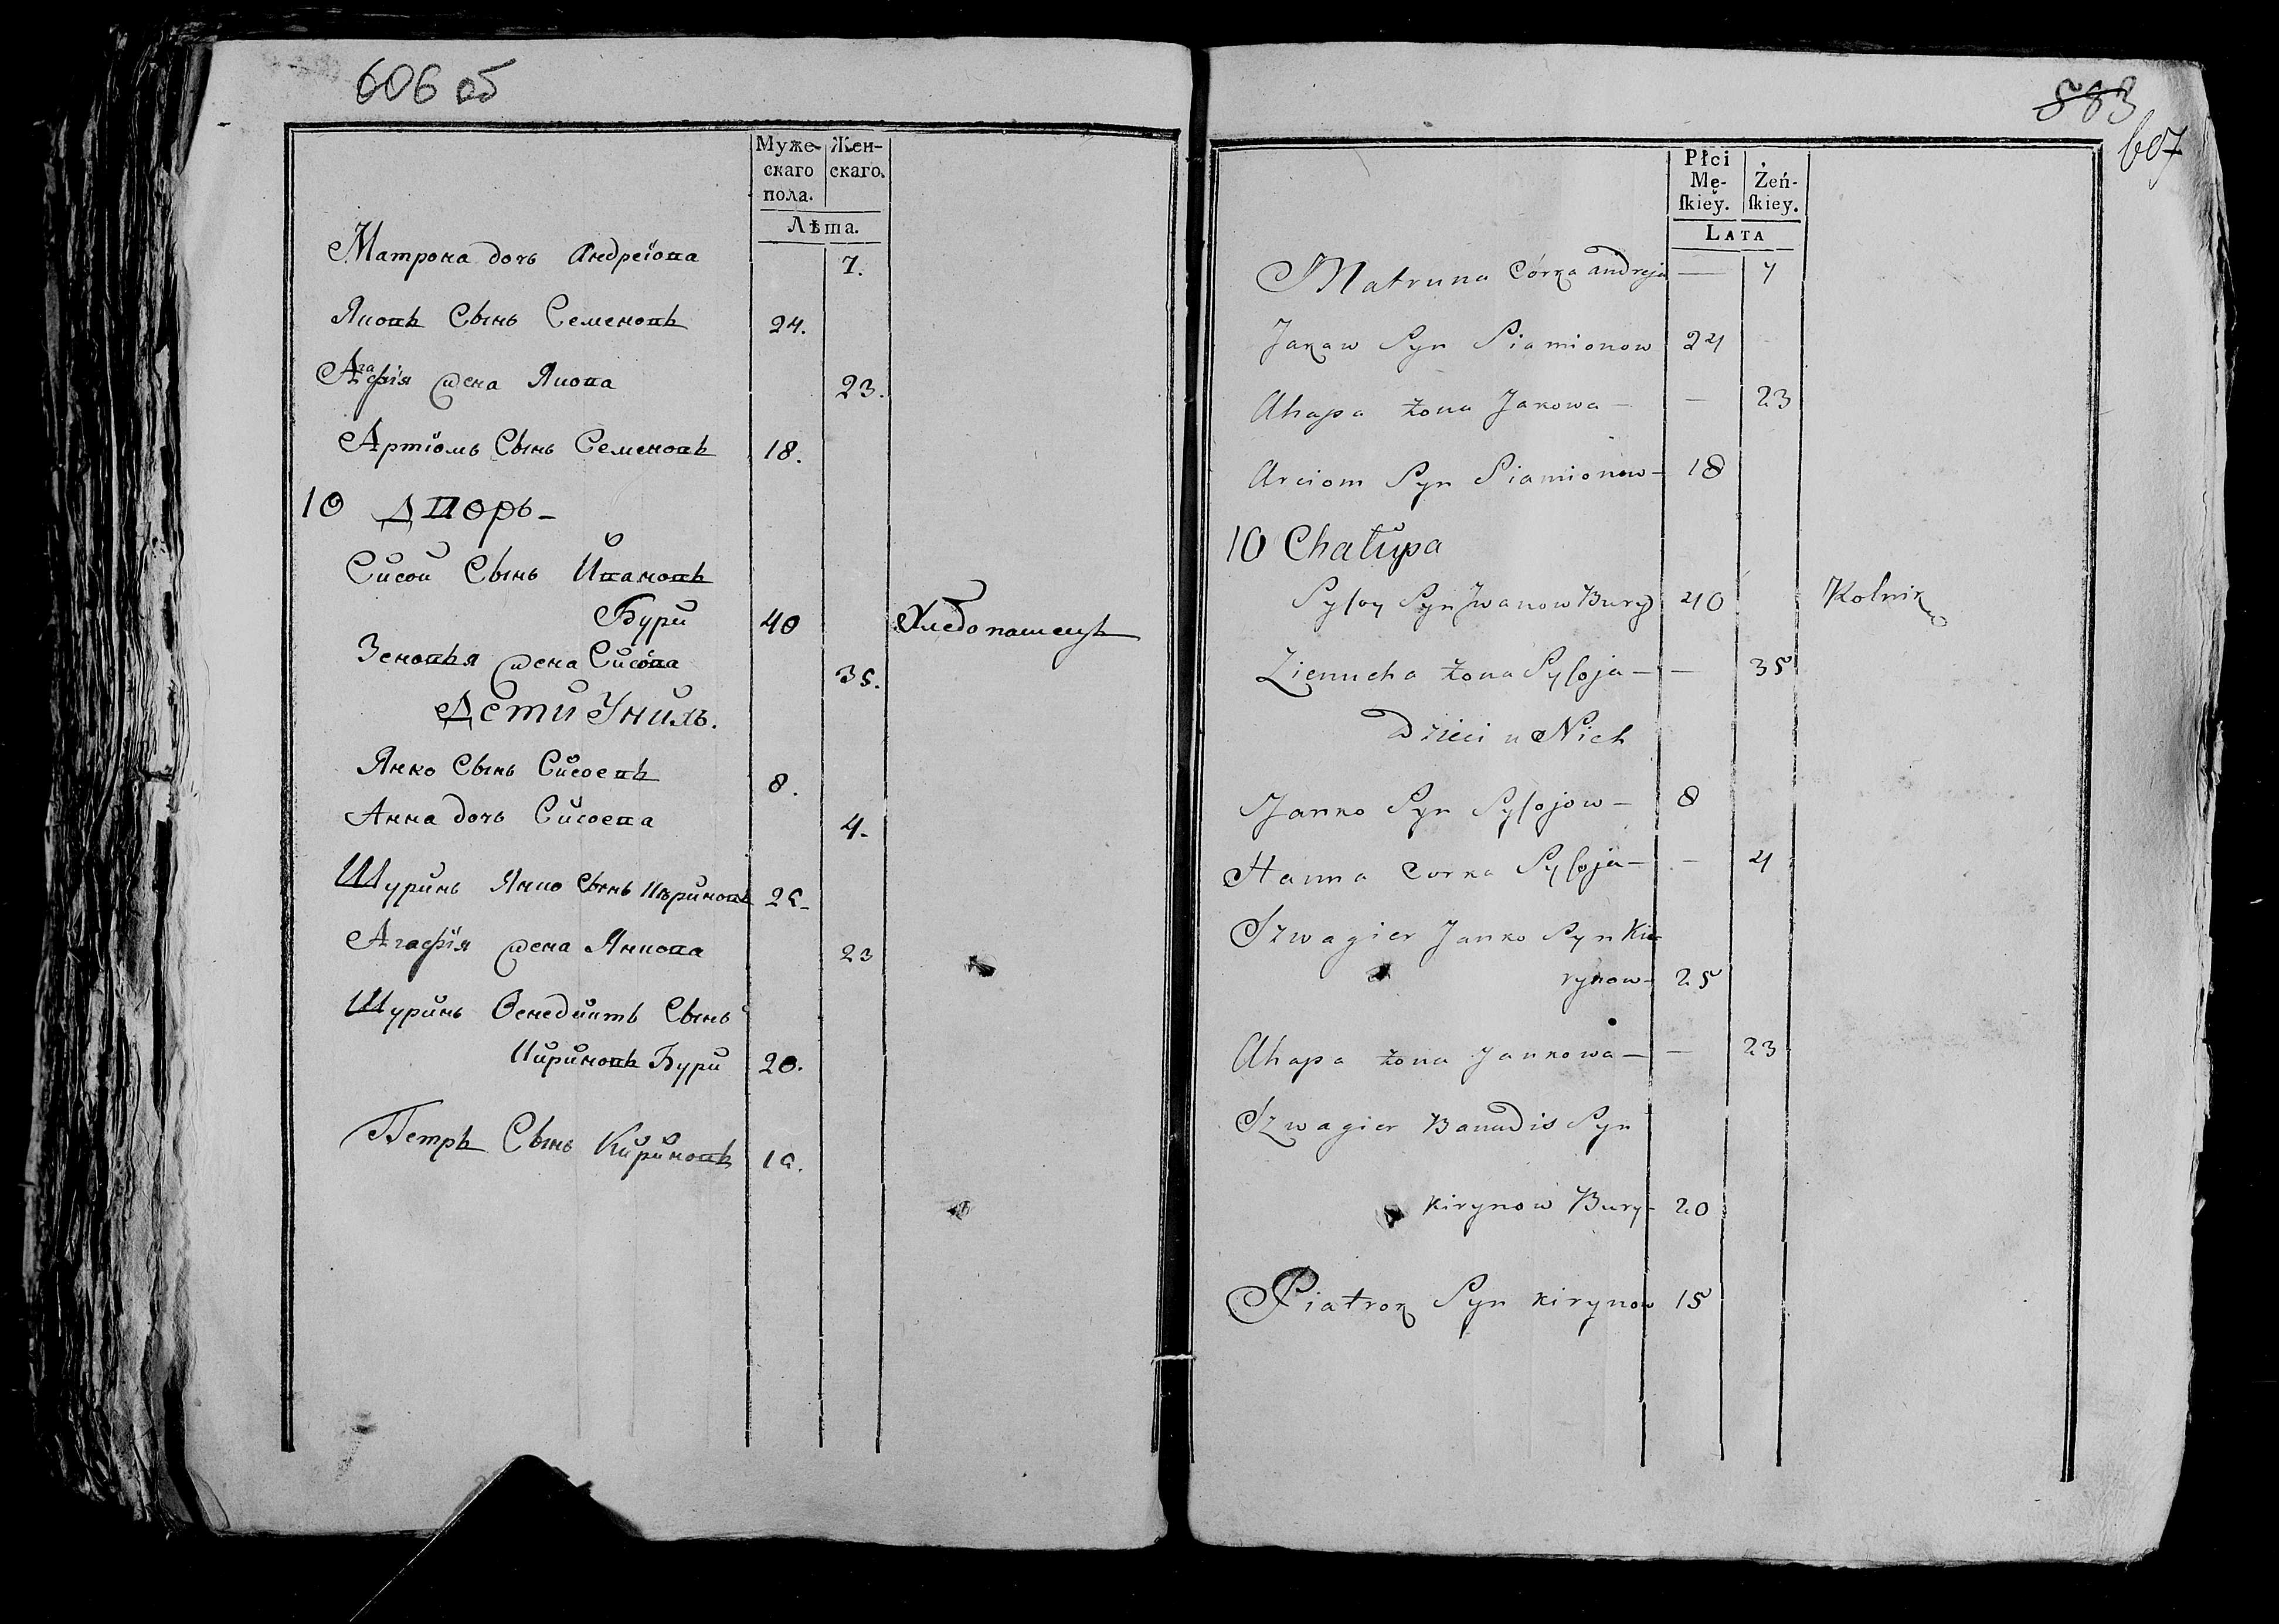 606 об
Муже-
скаго
пола.
Жен-
скаго.
Лѣта.
Матрона дочь Андреiова 7.
Яковъ Сынъ Семеновъ 24.
Агафiя жена Якова 23.
Артiомъ Сынъ Семеновъ 18.
10 Дворъ
Сисой Сынъ Ивановъ
Бури 40 Хлебопашецъ
Зеновья жена Сисова 35.
Дети Унихъ.
Янко Сынъ Сисоевъ 8.
Анна дочь Сисоева 4.
Шуринъ Янко Сынъ Кириновъ 25
Агафiя жена Янкова 23
Шуринъ Венедиктъ Сынъ
Кириновъ Бури 20.
Петръ Сынъ Кириновъ 15.
883
607
Płci
Mę-
ſkiey.
Żeń-
ſkiey.
LATA
Matruna Córka andreja — 7
Jakaw Syn Siamionow 24
Ahapa żona Jakowa — — 23
Arciom Syn Siamionow — 18
10 Chałupa
Syſoy Syn Jwanow Bury 40 Rolnik
Zienucha żona Syſoja — — 35
Dzieci u Nich
Janko Syn Syſojow — 8
Hanna Corka Syſoja — — 4
Szwagier Janko Syn Ki-
rynow — 25
Ahapa żona Jankowa — — 23
Szwagier Banadis Syn
Kirynow Bury — 20
Piatrok Syn kirynow 15